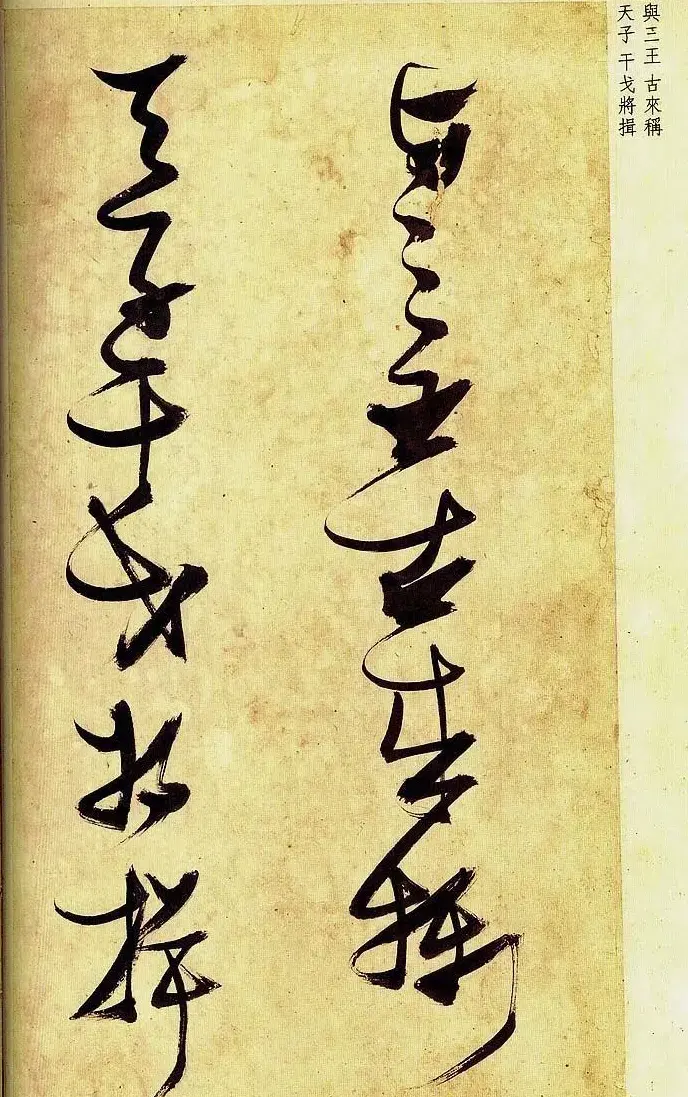 與三王 古來稱
天子 干戈將揖
與三王古來稱
天子干戈將揖